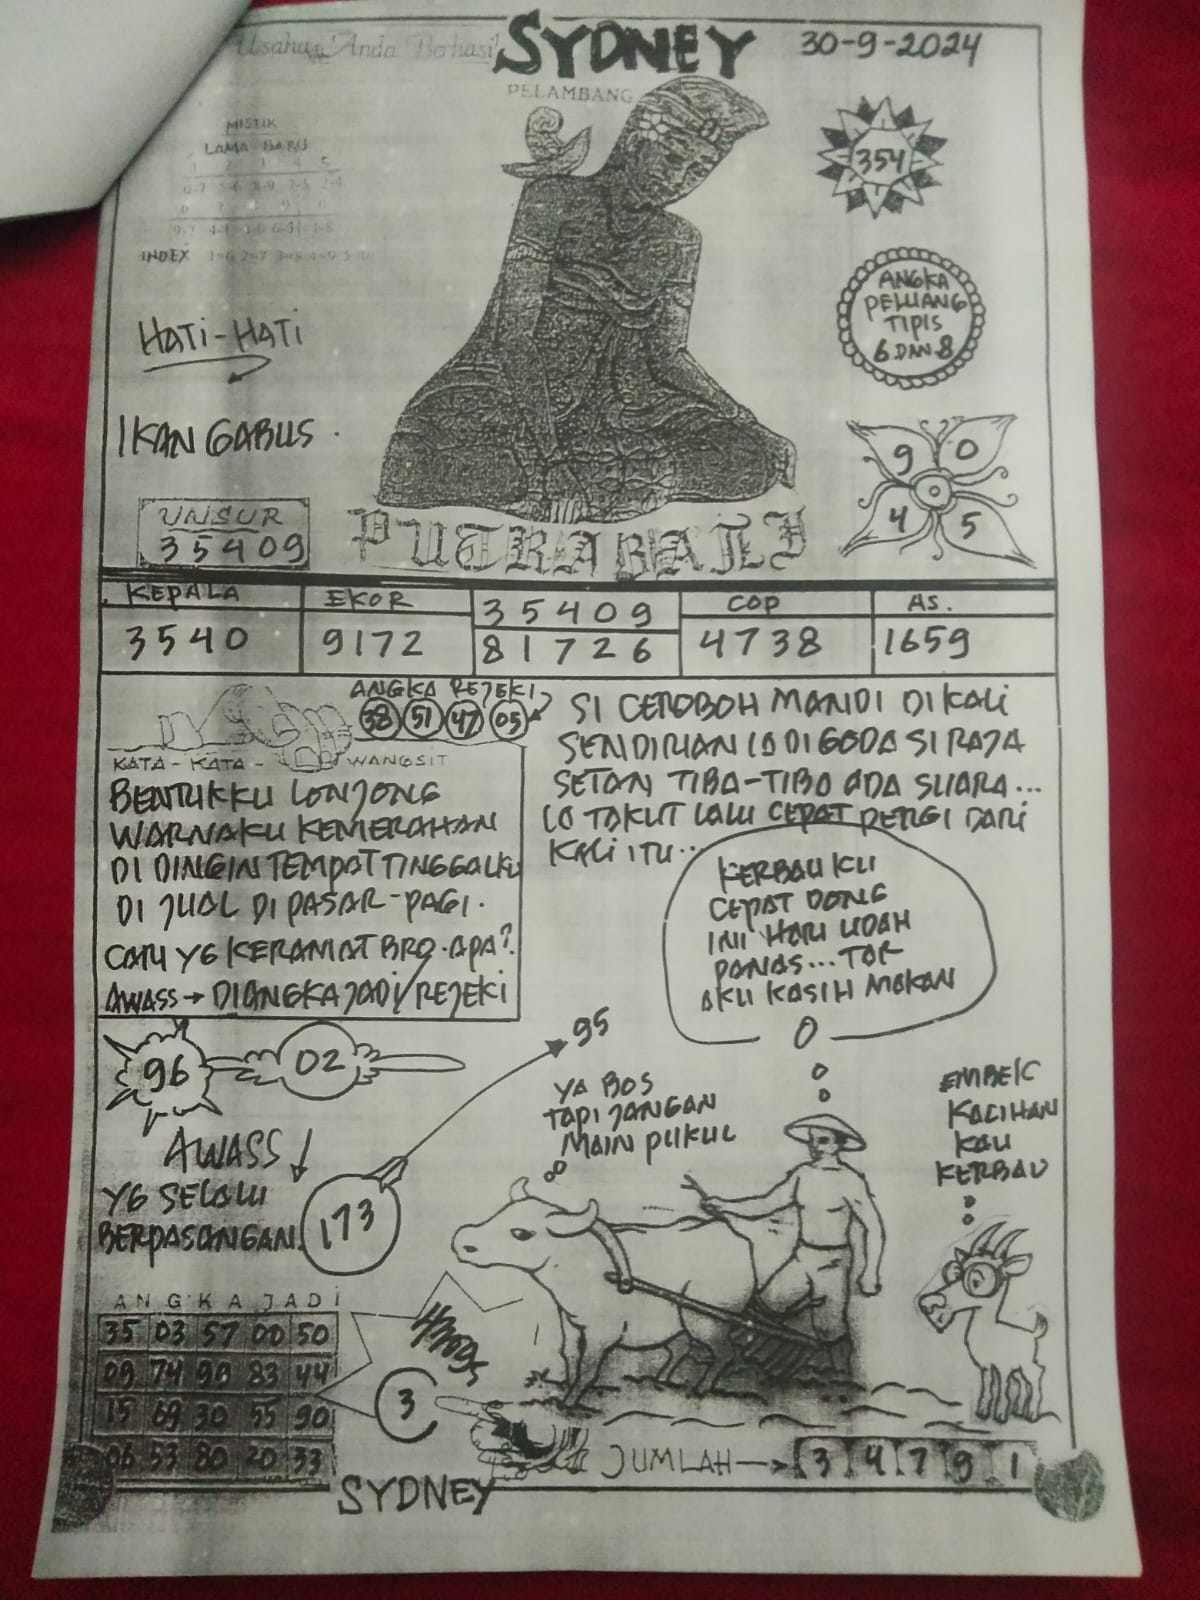 Usaha Anda Berhasil
SYDNEY
30-9-2024
PELAMBANG
MISTIK
LAMA BARU
INDEX
354
HATI-HATI
ANGKA
PELUANG
TIPIS
6 DAN 8
IKAN GABUS
9 0
4 5
UNSUR
35409
PUTRA BALI
KEPALA
3540
EKOR
9172
35409
81726
COP
4738
AS.
1659
ANGKA REJEKI
38 51 47 05
KATA-KATA-WANGSIT
BENTUKKU LONJONG
WARNAKU KEMERAHAN
DI DINGIN TEMPAT TINGGALKU
DI JUAL DI PASAR-PAGI.
CARI YG KERAMAT BRO. APA?
AWASS → DIANGKA JADI/REJEKI
SI CEROBOH MANDI DI KALI
SENDIRIAN IA DI GODA SI RAJA
SETAN TIBA-TIBA ADA SUARA...
IA TAKUT LALU CEPAT PERGI DARI
KALI ITU...
KERBAU KU
CEPAT DONG
INI HARI UDAH
PANAS... TAR
AKU KASIH MAKAN
96
02
95
YA BOS
TAPI JANGAN
MAIN PUKUL
EMBEK
KACIHAN
KAU
KERBAU
AWASS
YG SELALU
BERPASANGAN.
173
ANGKA JADI
35 03 57 00 50
09 74 99 83 44
15 69 30 55 90
06 53 80 20 33
3
JUMLAH → 3 4 7 9 1
SYDNEY